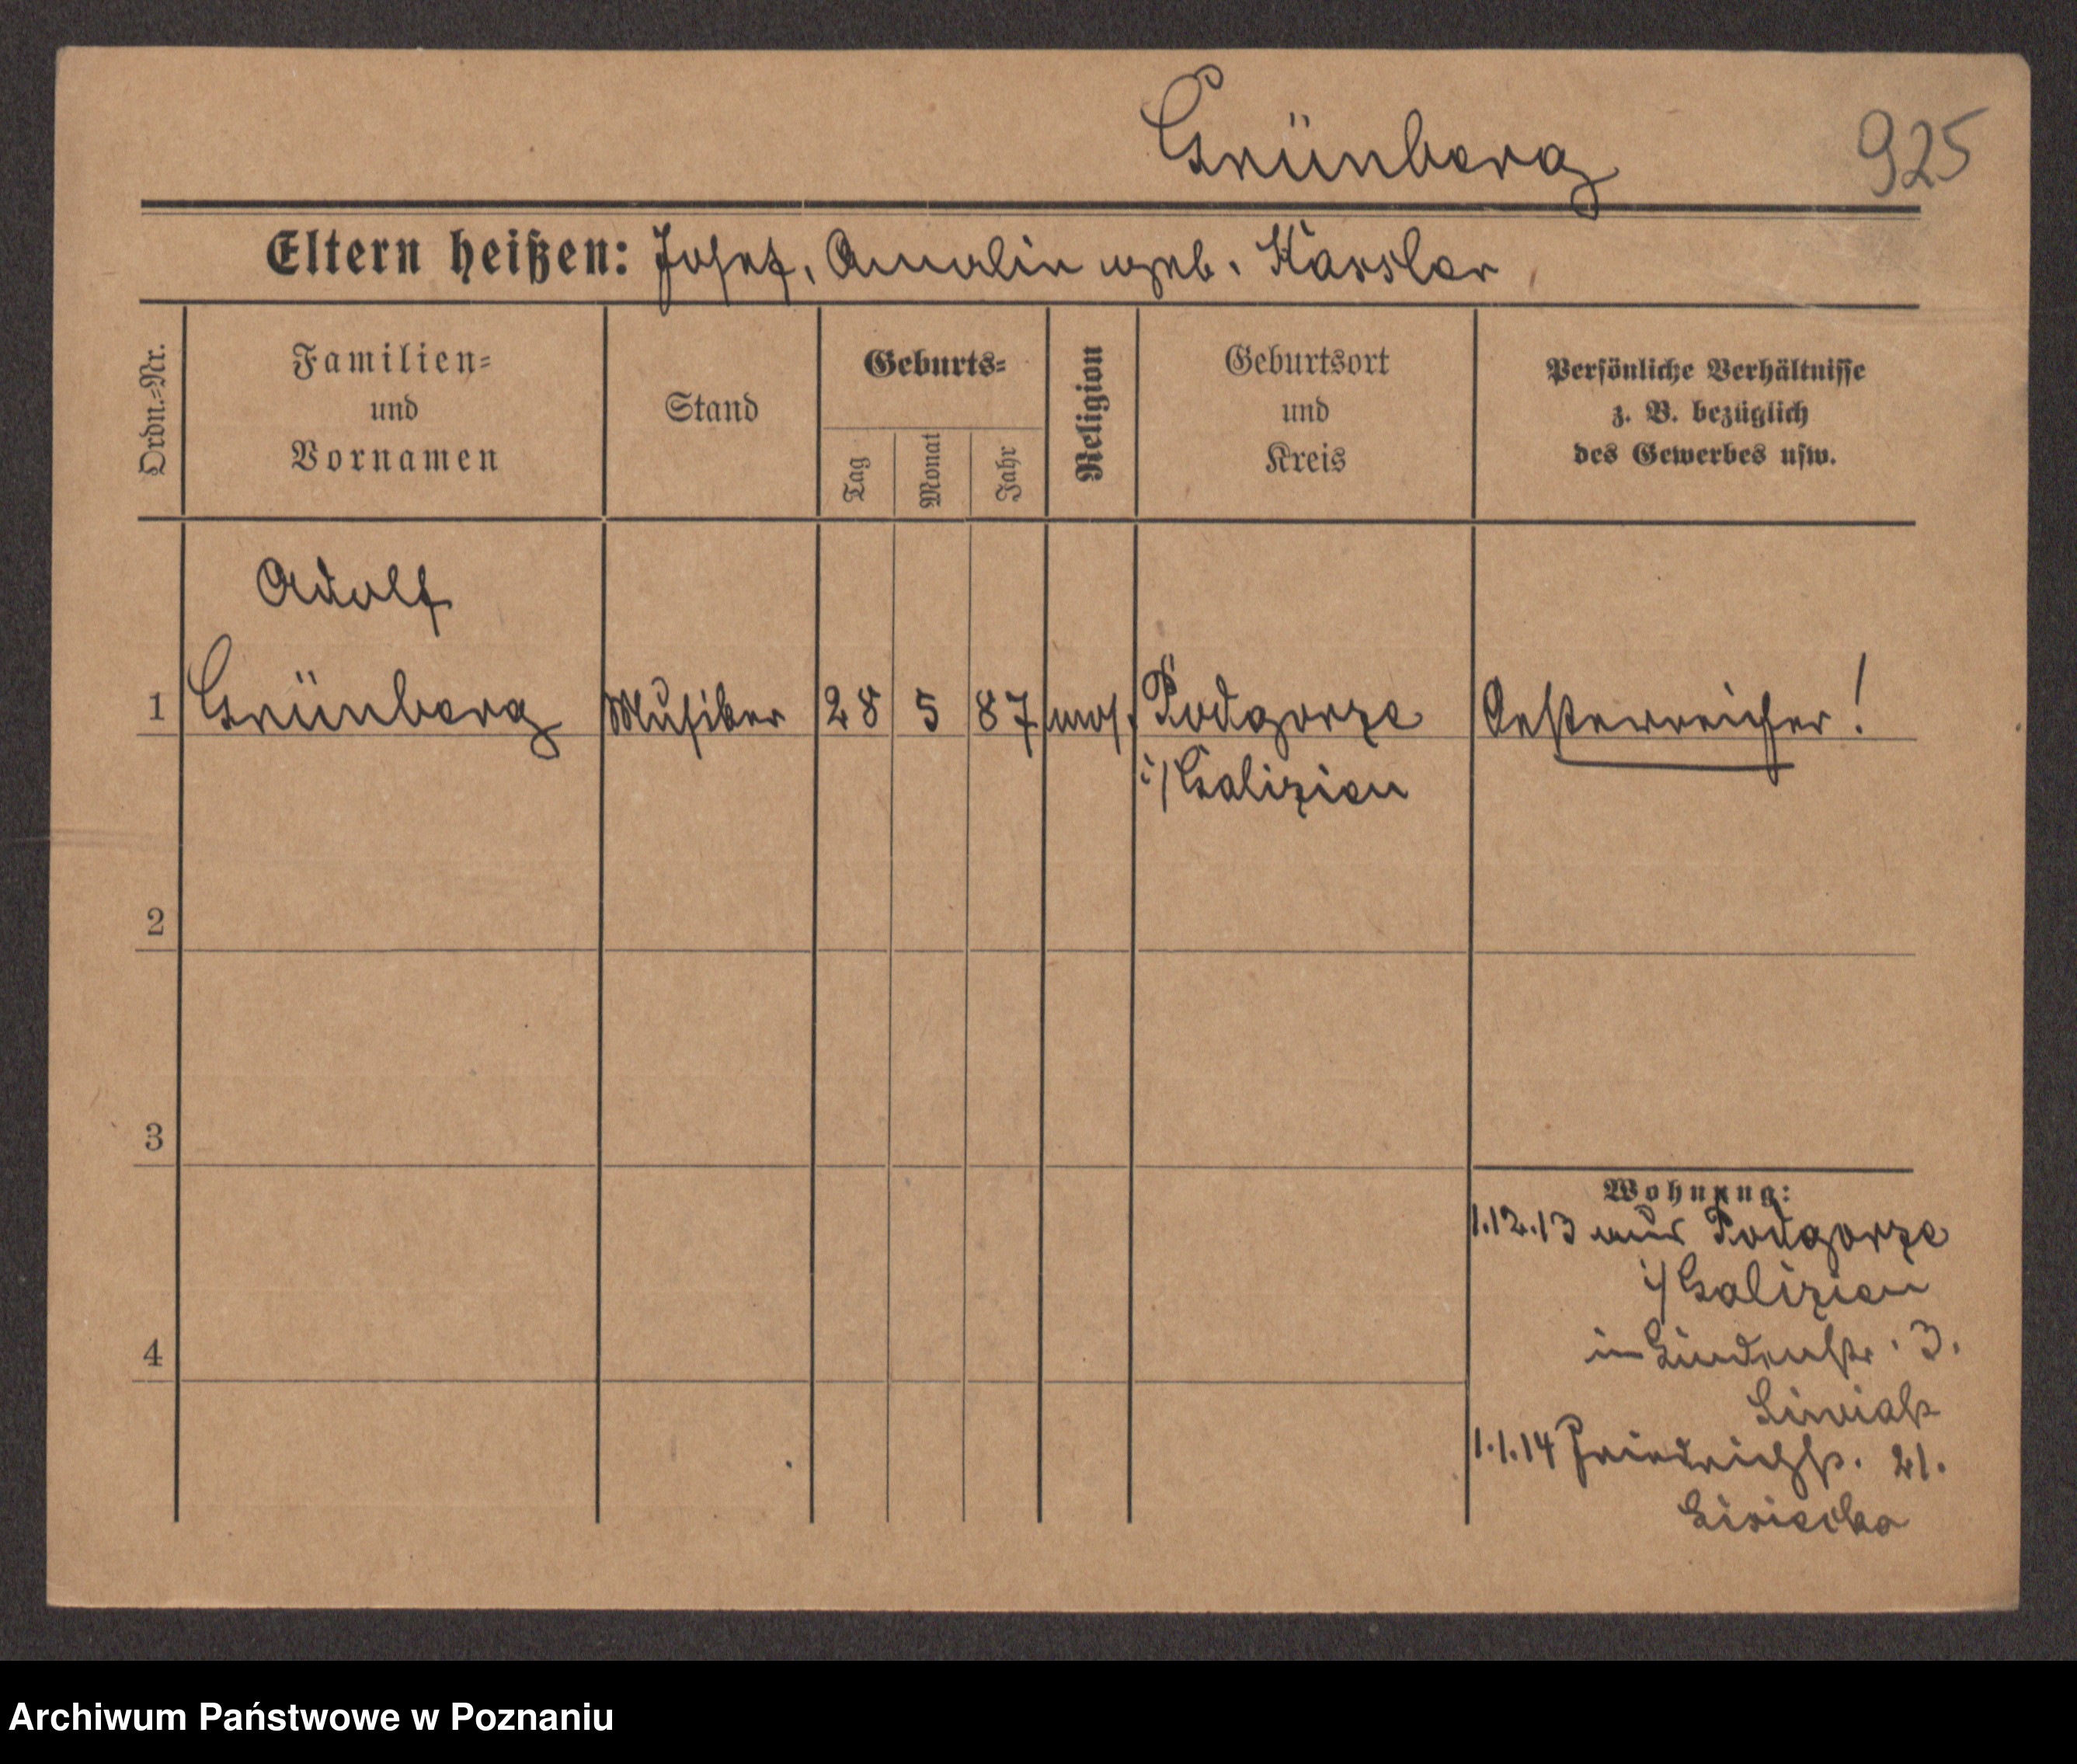 Grünberg 925
Eltern heißen: Josef, Amalie geb. Kassler
Ordn.-Nr.
Familien-
und
Vornamen
Stand
Geburts-
Tag
Monat
Jahr
Religion
Geburtsort
und
Kreis
Persönliche Verhältnisse
z. B. bezüglich
des Gewerbes usw.
Adolf
1 Grünberg Musiker 28 5 87 mos. Podgorze Oesterreicher!
i/Galizien
2
3
4
Wohnung:
1.12.13 aus Podgorze
i/Galizien
in Lindenstr. 3.
1.1.14 Friedrichstr. 21.
Archiwum Państwowe w Poznaniu